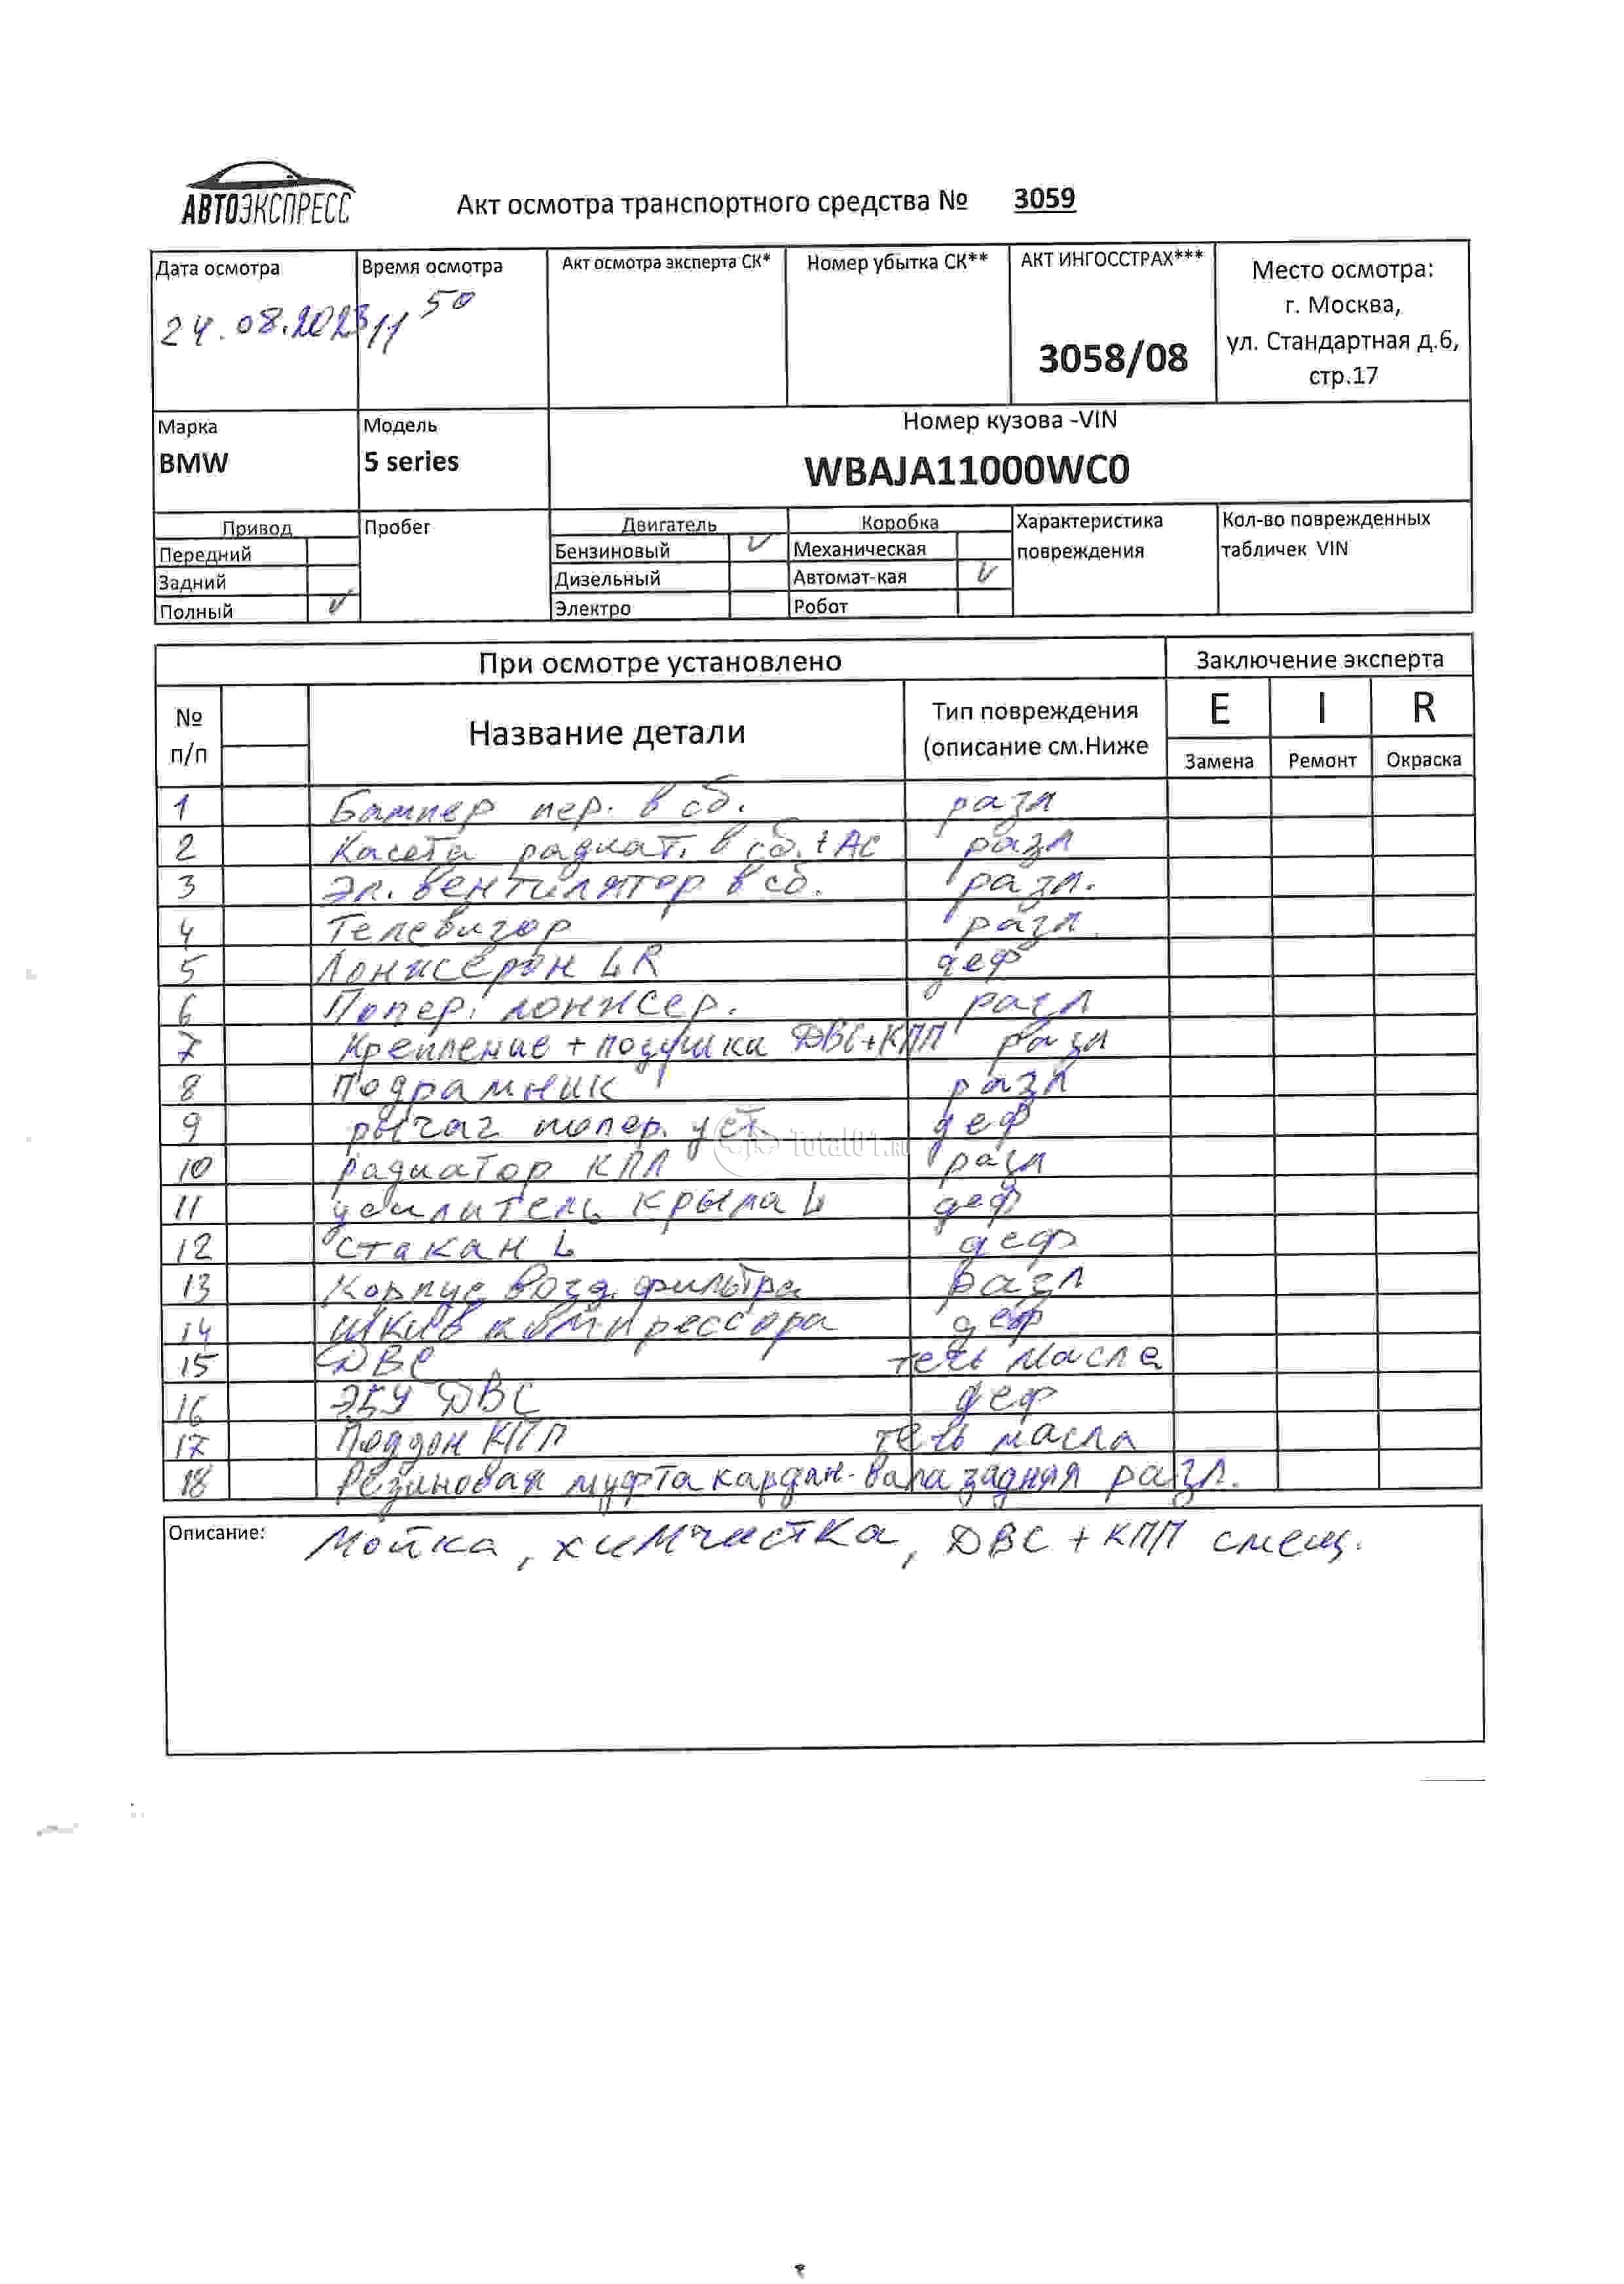 АВТОЭКСПРЕСС
Акт осмотра транспортного средства № 3059
Дата осмотра Время осмотра Акт осмотра эксперта СК* Номер убытка СК** АКТ ИНГОССТРАХ*** Место осмотра:
г. Москва,
24.08.2023 11 50 3058/08 ул. Стандартная д.6,
стр.17
Марка Модель Номер кузова -VIN
BMW 5 series WBAJA11000WC0
Привод Пробег Двигатель Коробка Характеристика Кол-во поврежденных
Передний Бензиновый V Механическая повреждения табличек VIN
Задний Дизельный Автомат-кая V
Полный V Электро Робот
При осмотре установлено Заключение эксперта
№ Название детали Тип повреждения E I R
п/п (описание см.Ниже Замена Ремонт Окраска
1 Бампер пер. в сб. разл
2 Касета радиат. в сб. + AC разл
3 Эл. вентилятор в сб. разл.
4 Телевизор разл.
5 Лонжерон L R деф
6 Попер. лонжер. разл
7 Крепление + подушки ДВС+КПП разл
8 Подрамник разл
9 рычаг попер. уст деф
Total01.ru
10 радиатор КПП разл
11 усилитель крыла L деф
12 стакан L деф
13 Корпус возд. фильтра разл
14 шкив компрессора деф
15 ДВС течь масла
16 ЭБУ ДВС деф
17 Поддон КПП течь масла
18 Резиновая муфта кардан. вала задняя разл.
Описание: Мойка, химчистка, ДВС + КПП смещ.